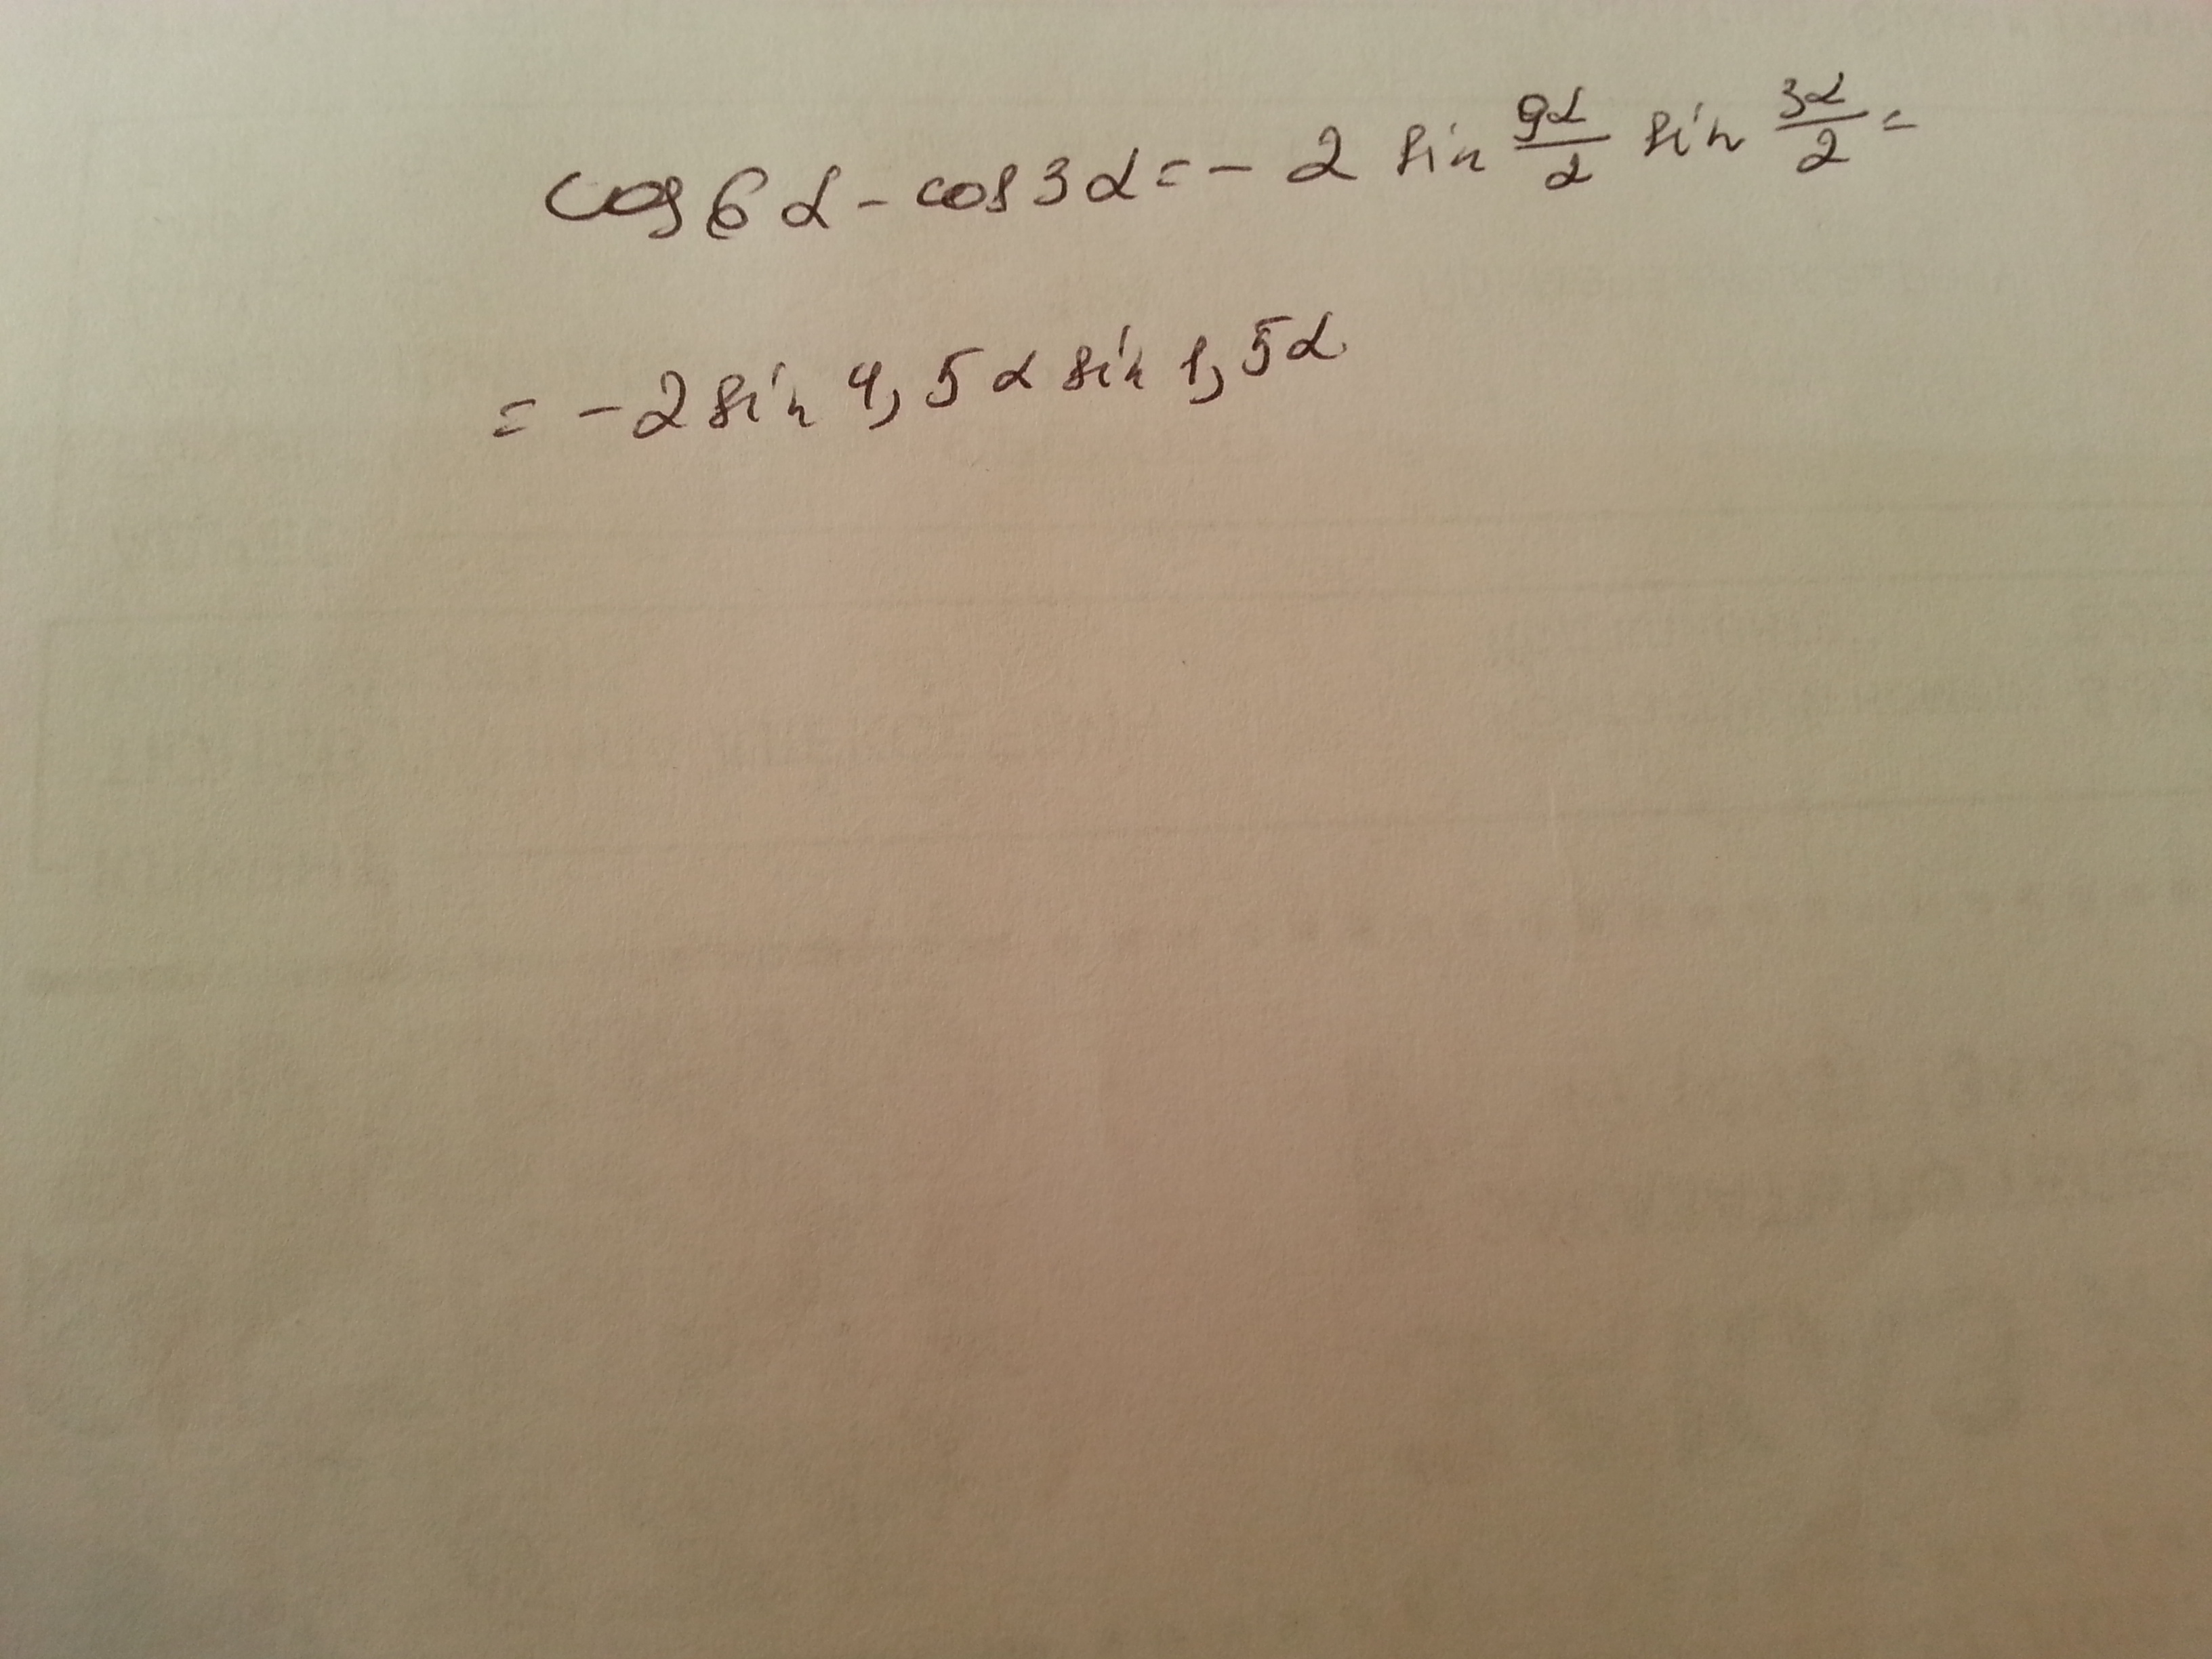 cos6α - cos3α = - 2 sin 9α/2 sin 3α/2 =
= - 2 sin 4,5α sin 1,5α